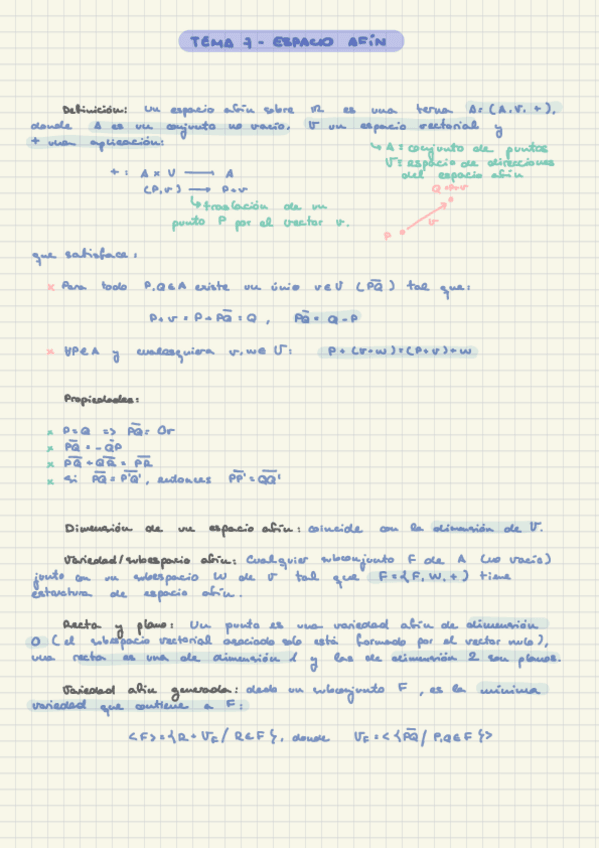 TEMA 7 - ESPACIO AFÍN
Definición: Un espacio afín sobre K es una terna A=(A,V,+),
donde A es un conjunto no vacío, V un espacio vectorial y
+ una aplicación:
↳ A = conjunto de puntos
V = espacio de direcciones
del espacio afín
+ : A x V ⟶ A
(P,v) ⟶ P+v
↳ traslación de un
punto P por el vector v.
Q=P+v
P
v
que satisface:
x Para todo P,Q∈A existe un único v∈V (PQ̅) tal que:
P+v = P+PQ̅ = Q , PQ̅ = Q-P
x ∀P∈A y cualesquiera v,w∈V: P+(v+w)=(P+v)+w
Propiedades:
x P=Q => PQ̅ = 0v
x PQ̅ = -QP̅
x PQ̅ + QR̅ = PR̅
x Si PQ̅ = P'Q'̅, entonces PP'̅ = QQ'̅
Dimensión de un espacio afín: coincide con la dimensión de V.
Variedad/subespacio afín: Cualquier subconjunto F de A (no vacío)
junto con un subespacio W de V tal que F={F,W,+} tiene
estructura de espacio afín.
Recta y plano: Un punto es una variedad afín de dimensión
0 (el subespacio vectorial asociado solo está formado por el vector nulo),
una recta es una de dimensión 1 y las de dimensión 2 son planos.
Variedad afín generada: dado un subconjunto F, es la mínima
variedad que contiene a F:
<F>={R+V_F / R∈F}, donde V_F=<{PQ̅ / P,Q∈F}>